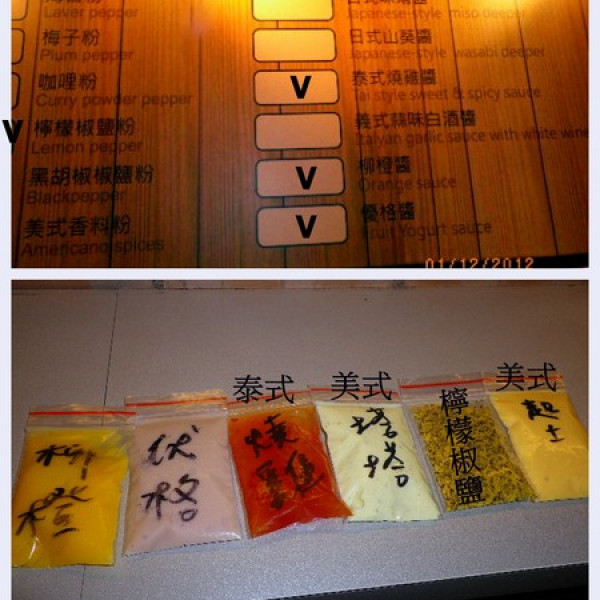 Laver pepper
Japanese-style miso deeper
梅子粉
Plum pepper
日式山葵醬
Japanese-style wasabi deeper
咖哩粉
Curry powder pepper
V
泰式燒雞醬
Tai style sweet & spicy sauce
V
檸檬椒鹽粉
Lemon pepper
義式蒜味白酒醬
Itaiyan garlic sauce with white wine
黑胡椒椒鹽粉
Blackpepper
V
柳橙醬
Orange sauce
美式香料粉
Americano spices
V
優格醬
Fruit Yogurt sauce
01/12/2012
泰式
美式
美式
柳橙
伏格
燒雞
塔塔
檸檬椒鹽
起士